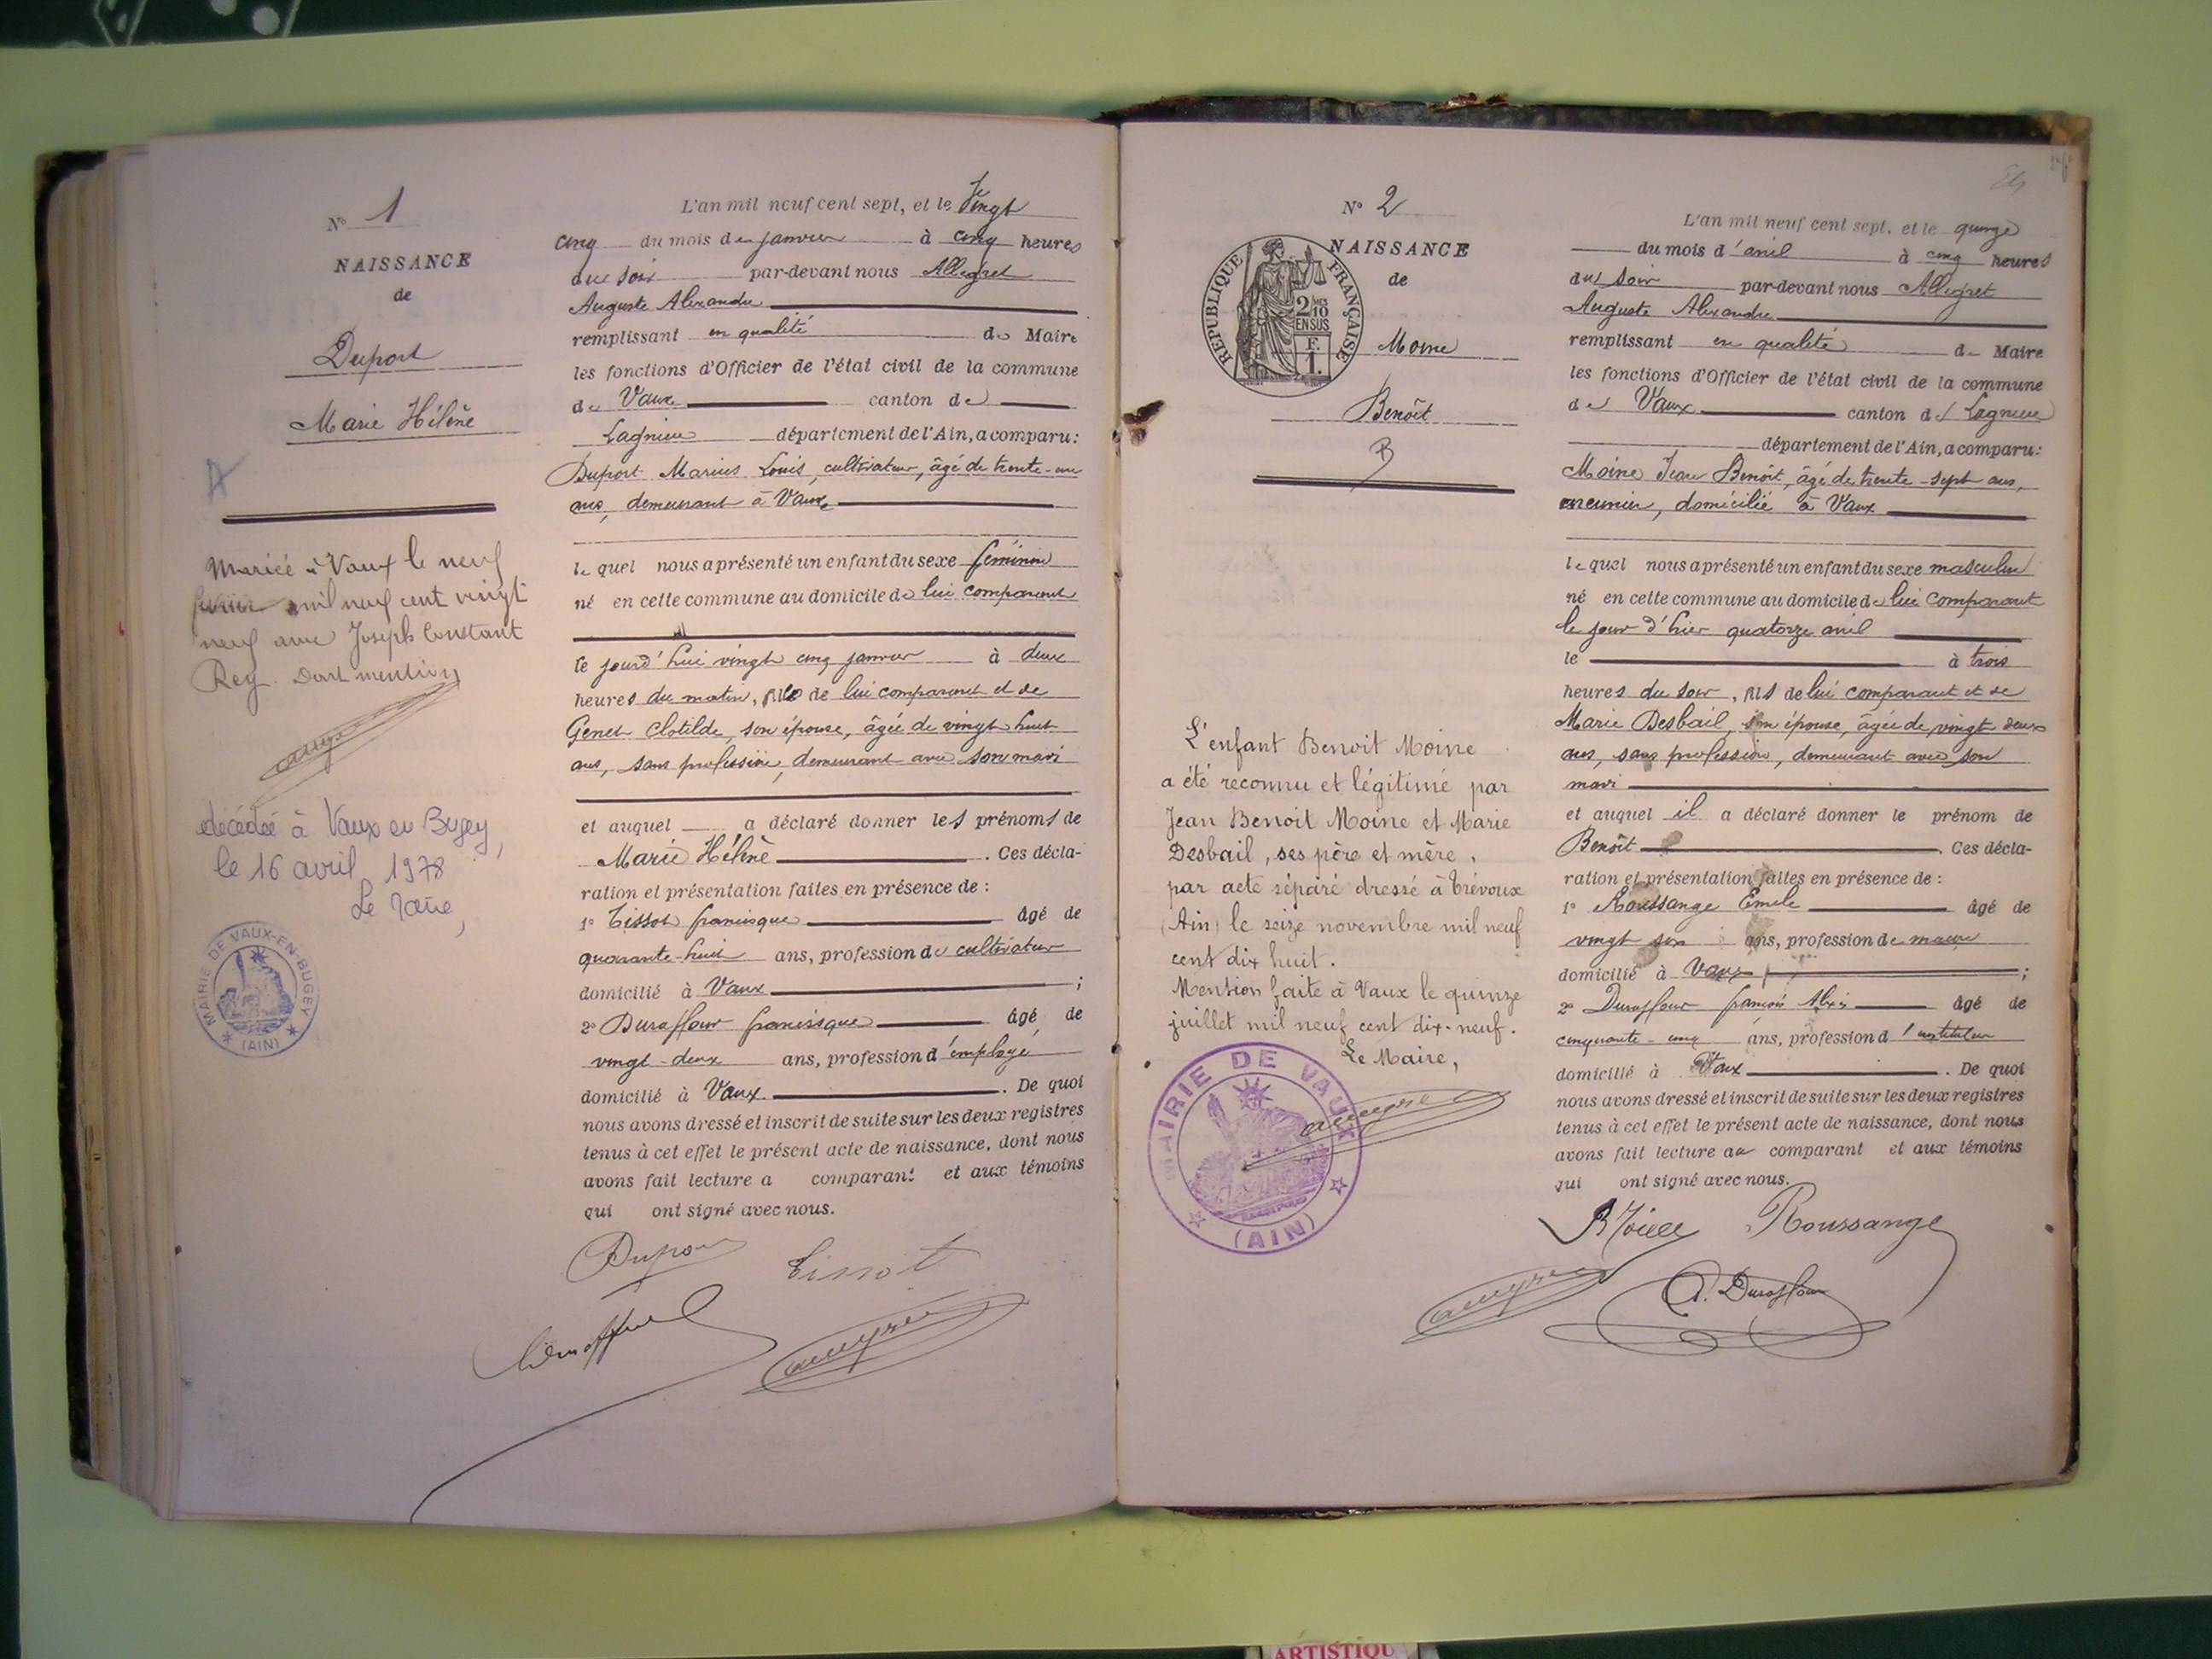 N° 1
NAISSANCE
de
Duport
Marie Hélène
A
Mariée à Vaux le neuf
février mil neuf cent vingt
neuf avec Joseph Constant
Rey. Dont mention
décédée à Vaux en Bugey,
le 16 avril 1978
Le Maire,
MAIRIE DE VAUX-EN-BUGEY
(AIN)
L'an mil neuf cent sept, et le Vingt
cinq du mois de janvier à cinq heures
du soir par-devant nous Allegret
Auguste Alexandre
remplissant en qualité de Maire
les fonctions d'Officier de l'état civil de la commune
de Vaux canton de
Lagnieu département de l'Ain, a comparu:
Duport Marius Louis, cultivateur, âgé de trente-un
ans, demeurant à Vaux
le quel nous a présenté un enfant du sexe féminin
né en cette commune au domicile de lui comparant
le jourd'hui vingt cinq janvier à deux
heures du matin, fille de lui comparant et de
Genet Clotilde, son épouse, âgée de vingt huit
ans, sans profession, demeurant avec son mari
et auquel a déclaré donner les prénoms de
Marie Hélène . Ces décla-
ration et présentation faites en présence de :
1° Tissot francisque âgé de
quarante-huit ans, profession de cultivateur
domicilié à Vaux ;
2° Duraffour francisque âgé de
vingt-deux ans, profession d'employé
domicilié à Vaux . De quoi
nous avons dressé et inscrit de suite sur les deux registres
tenus à cet effet le présent acte de naissance, dont nous
avons fait lecture a comparant et aux témoins
qui ont signé avec nous.
Dupor
Tissot
N° 2
NAISSANCE
de
REPUBLIQUE FRANÇAISE
2/10
EN SUS
F.
1.
Moine
Benoît
B
L'enfant Benoit Moine
a été reconnu et légitimé par
Jean Benoit Moine et Marie
Desbail, ses père et mère,
par acte séparé dressé à Trévoux
(Ain) le seize novembre mil neuf
cent dix huit.
Mention faite à Vaux le quinze
juillet mil neuf cent dix-neuf.
Le Maire,
MAIRIE DE VAUX
(AIN)
L'an mil neuf cent sept, et le quinze
du mois d'avril à cinq heures
du soir par-devant nous Allegret
Auguste Alexandre
remplissant en qualité de Maire
les fonctions d'Officier de l'état civil de la commune
de Vaux canton de Lagnieu
département de l'Ain, a comparu:
Moine Jean Benoît, âgé de trente-sept ans,
meunier, domicilié à Vaux
le quel nous a présenté un enfant du sexe masculin
né en cette commune au domicile de lui comparant
le jour d'hier quatorze avril
le à trois
heures du soir, fils de lui comparant et de
Marie Desbail, son épouse, âgée de vingt deux
ans, sans profession, demeurant avec son
mari
et auquel il a déclaré donner le prénom de
Benoît . Ces décla-
ration et présentation faites en présence de :
1° Roussange Emile âgé de
vingt ans, profession de
domicilié à Vaux ;
2° Duraffour françois Alexis âgé de
cinquante-cinq ans, profession d'instituteur
domicilié à Vaux . De quoi
nous avons dressé et inscrit de suite sur les deux registres
tenus à cet effet le présent acte de naissance, dont nous
avons fait lecture au comparant et aux témoins
qui ont signé avec nous.
Roussange
A. Duraffour
ARTISTIQU